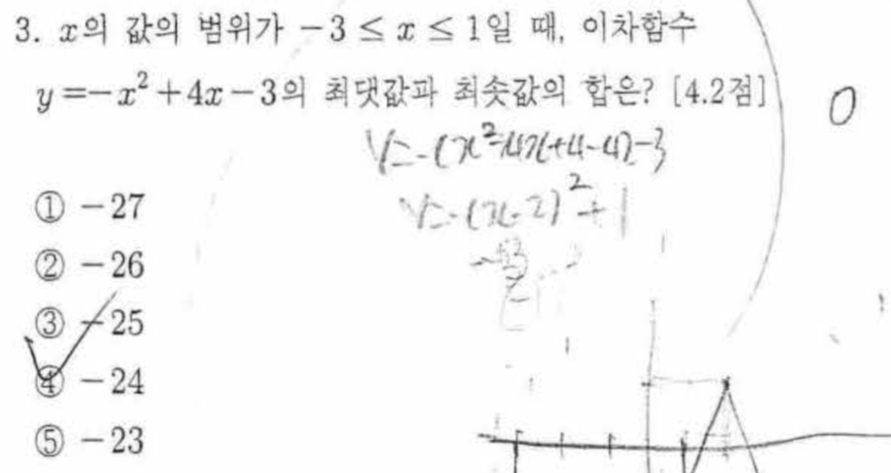 3. x의 값의 범위가 -3 ≤ x ≤ 1일 때, 이차함수
y=-x²+4x-3의 최댓값과 최솟값의 합은? [4.2점]
y=-(x²-4x+4-4)-3
y=-(x-2)²+1
① -27
② -26
③ -25
④ -24
⑤ -23